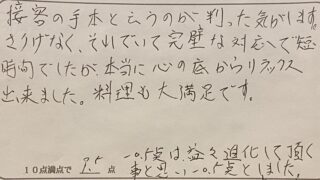 接客の手本と云うのが判った気がします。
さりげなく、それでいて完璧な対応で短
時間でしたが、本当に心の底からリラックス
出来ました。料理も大満足です。
10点満点で 9.5 点 -0.5点は益々進化して頂く
事と思い-0.5点としました。